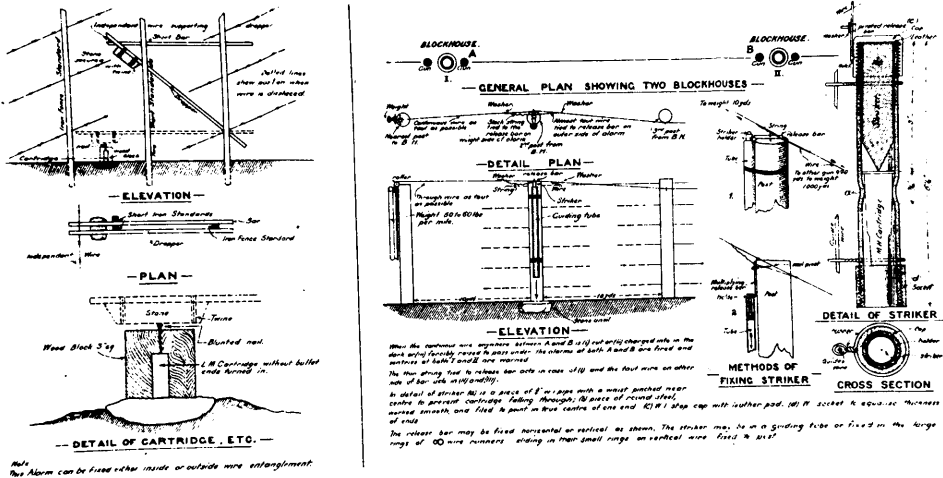 Independent wire supporting
dropper
Short Bar
Stone
secured
with
twine
Dotted lines
show position when
wire is displaced.
Iron Fence Standard
Short Iron Standards
Cartridge
wood
block
— ELEVATION —
Short Iron Standards
Bar
Dropper
Iron Fence Standard
Independent Wire
— PLAN —
Stone
Twine
Blunted nail.
Wood Block 5" sq
L.M. Cartridge without bullet
ends turned in.
-- DETAIL OF CARTRIDGE, ETC. —
Note
This Alarm can be fixed either inside or outside wire entanglement.
BLOCKHOUSE.
A
Gun
Gun
I.
BLOCKHOUSE.
B
Gun
Gun
II
— GENERAL PLAN SHOWING TWO BLOCKHOUSES —
Weight
Washer
Washer
Continuous wire as
taut as possible
Nearest post
to B.H.
Slack string
tied to the
release bar on
weight side of alarm
2nd post from
B.H.
Almost taut wire
tied to release bar on
outer side of alarm
3rd post
from B.H.
— DETAIL PLAN —
roller
Washer
release bar
Washer
String
Wire
Through wire as taut
as possible
Striker
Weight 50 to 60 lbs
per mile.
Guiding tube
10 yds
10 yds
Stone anvil
— ELEVATION —
When the continuous wire anywhere between A and B is (i) cut or (ii) charged into in the
dark or (iii) forcibly raised to pass under the alarms at both A and B are fired and
sentries at both I and II are warned
The thin string tied to release bar acts in case of (i) and the taut wire on other
side of bar acts in (ii) and (iii).
In detail of striker (a) is a piece of ½" w.i. pipe with a waist pinched near
centre to prevent cartridge falling through; (b) piece of round steel,
worked smooth, and filed to point in true centre of one end (c) W.I. stop cap with leather pad. (d) W. socket to equalise thickness
of ends
The release bar may be fixed horizontal or vertical as shown. The striker may be in a guiding tube or fixed in the large
rings of ∞ wire runners sliding in their small rings on vertical wire fixed to post
To weight 10 yds
String
Striker
holder
release bar
Tube
Post
wire
to other gun
yds to weight
1000 yds
1.
nail pivot
Multiplying
release bar
Post
2
Tube
METHODS OF
FIXING STRIKER
Wire
pivoted release
bar
(c)
Cap
leather
Washer
Striker
M.H. Cartridge
Socket
DETAIL OF STRIKER
Cap
holder
Striker
Guides
CROSS SECTION